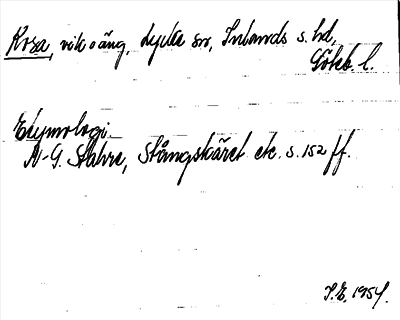 Rosa, vik o äng, Lycke sn, Inlands s. hd,
Göteb. l.
Etymologi.
N.-G. Stahre, Stångskäret etc. s. 152 ff.
I.E. 1954.